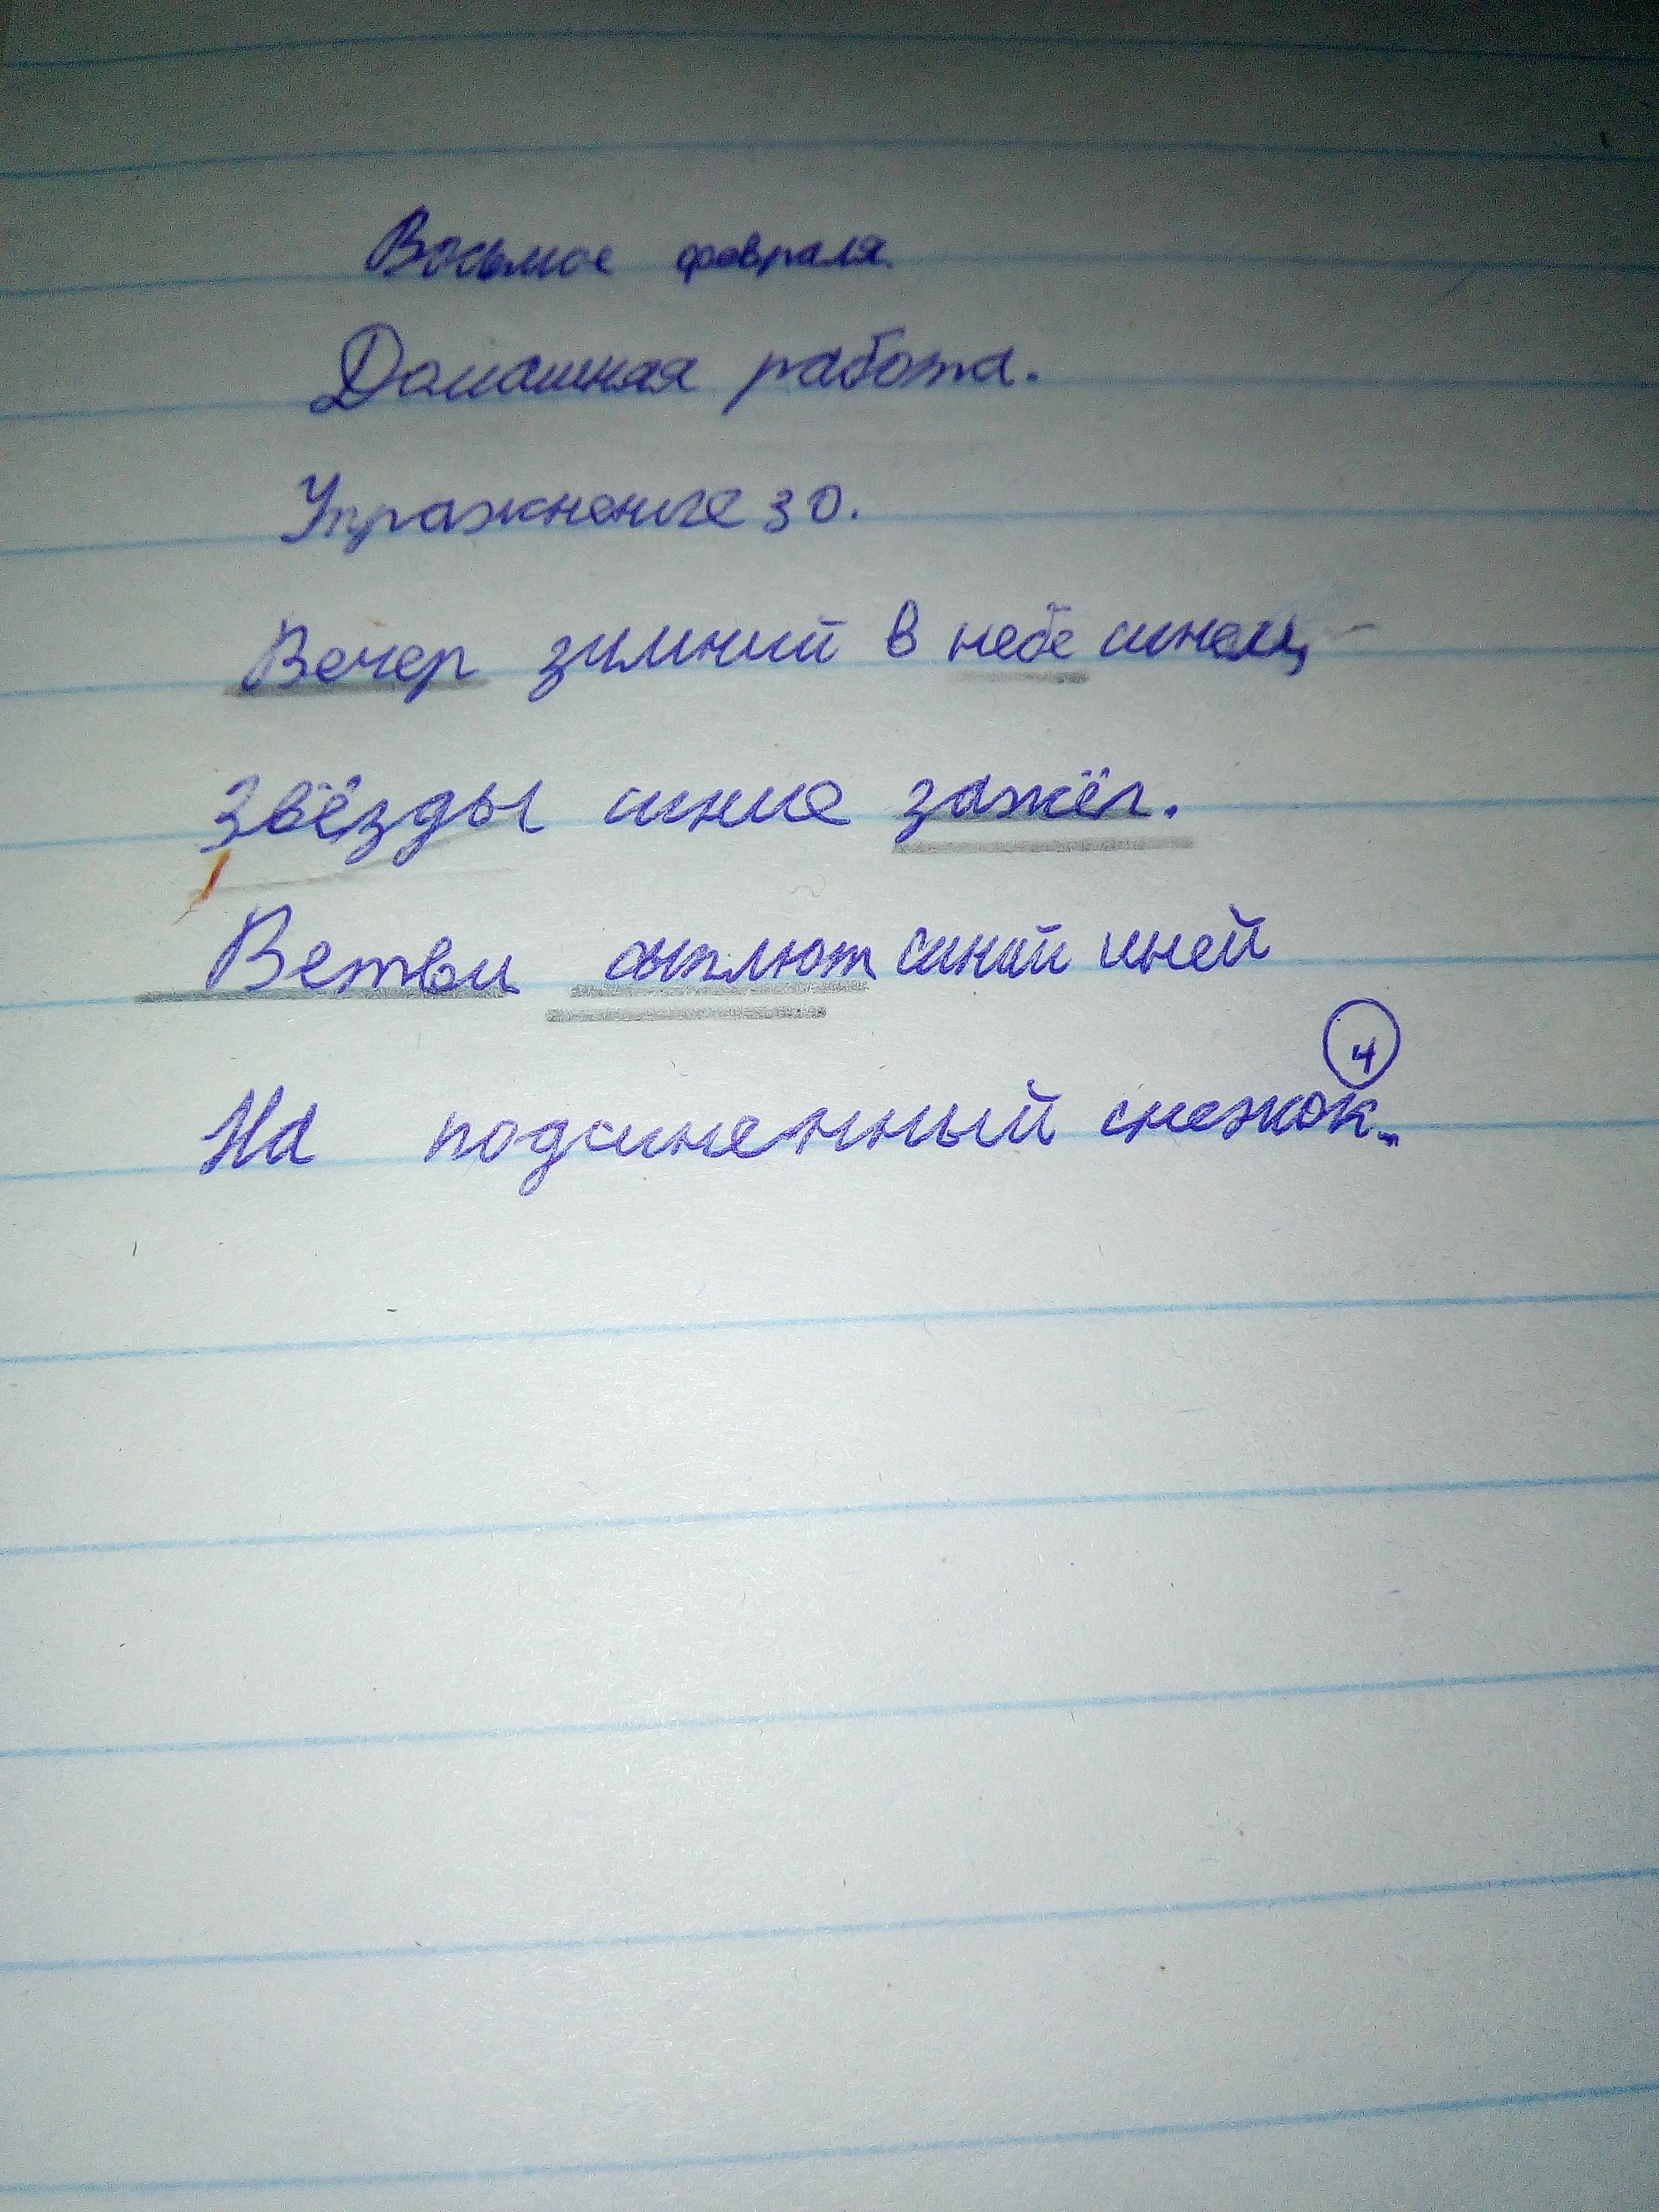 Восьмое февраля.
Домашная работа.
Упражнение 30.
Вечер зимний в небе синем,
Звёзды синие зажёг.
Ветви сыплют синий иней
4
На подсиненный снежок.